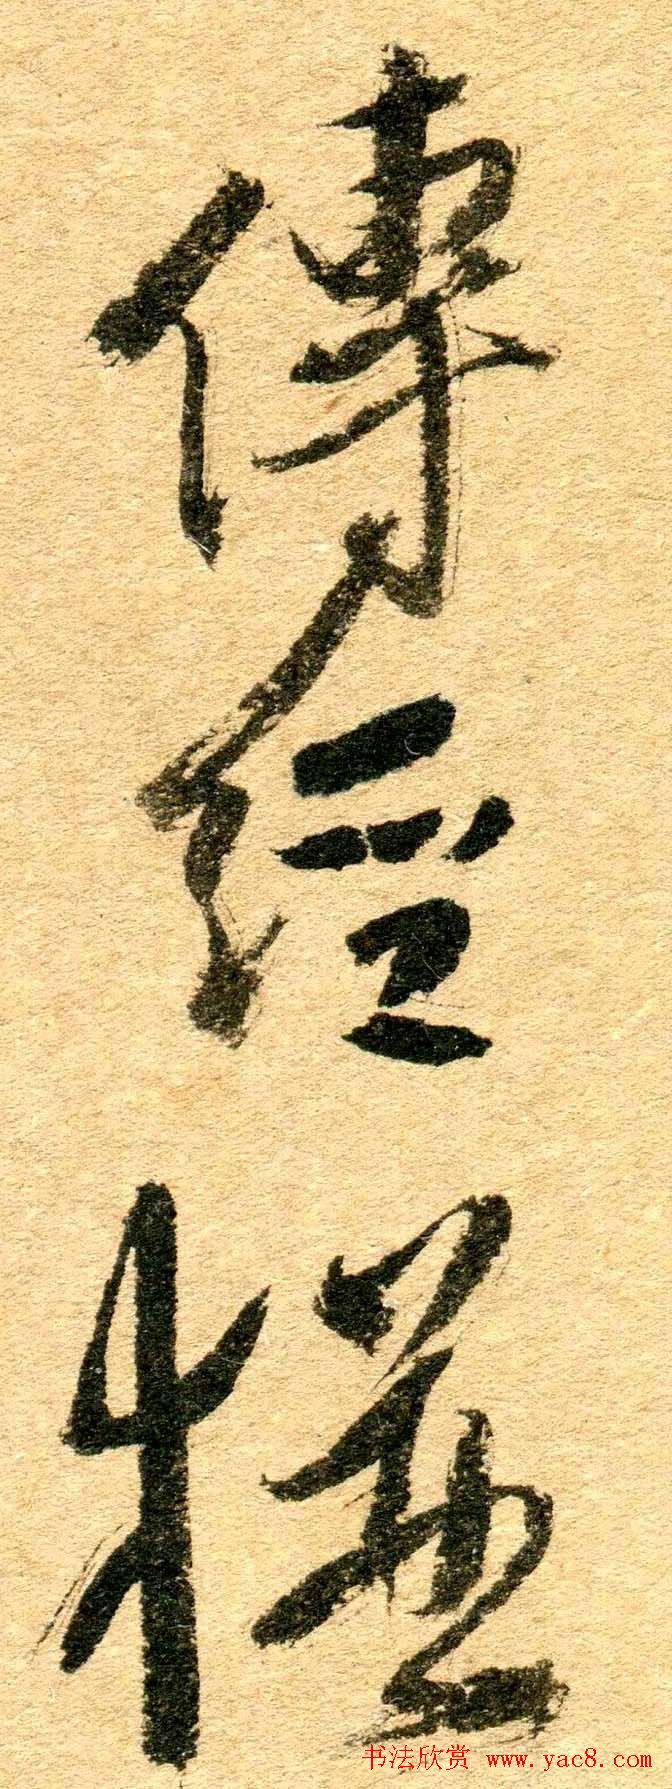 傳經
书法欣赏 www.yac8.com